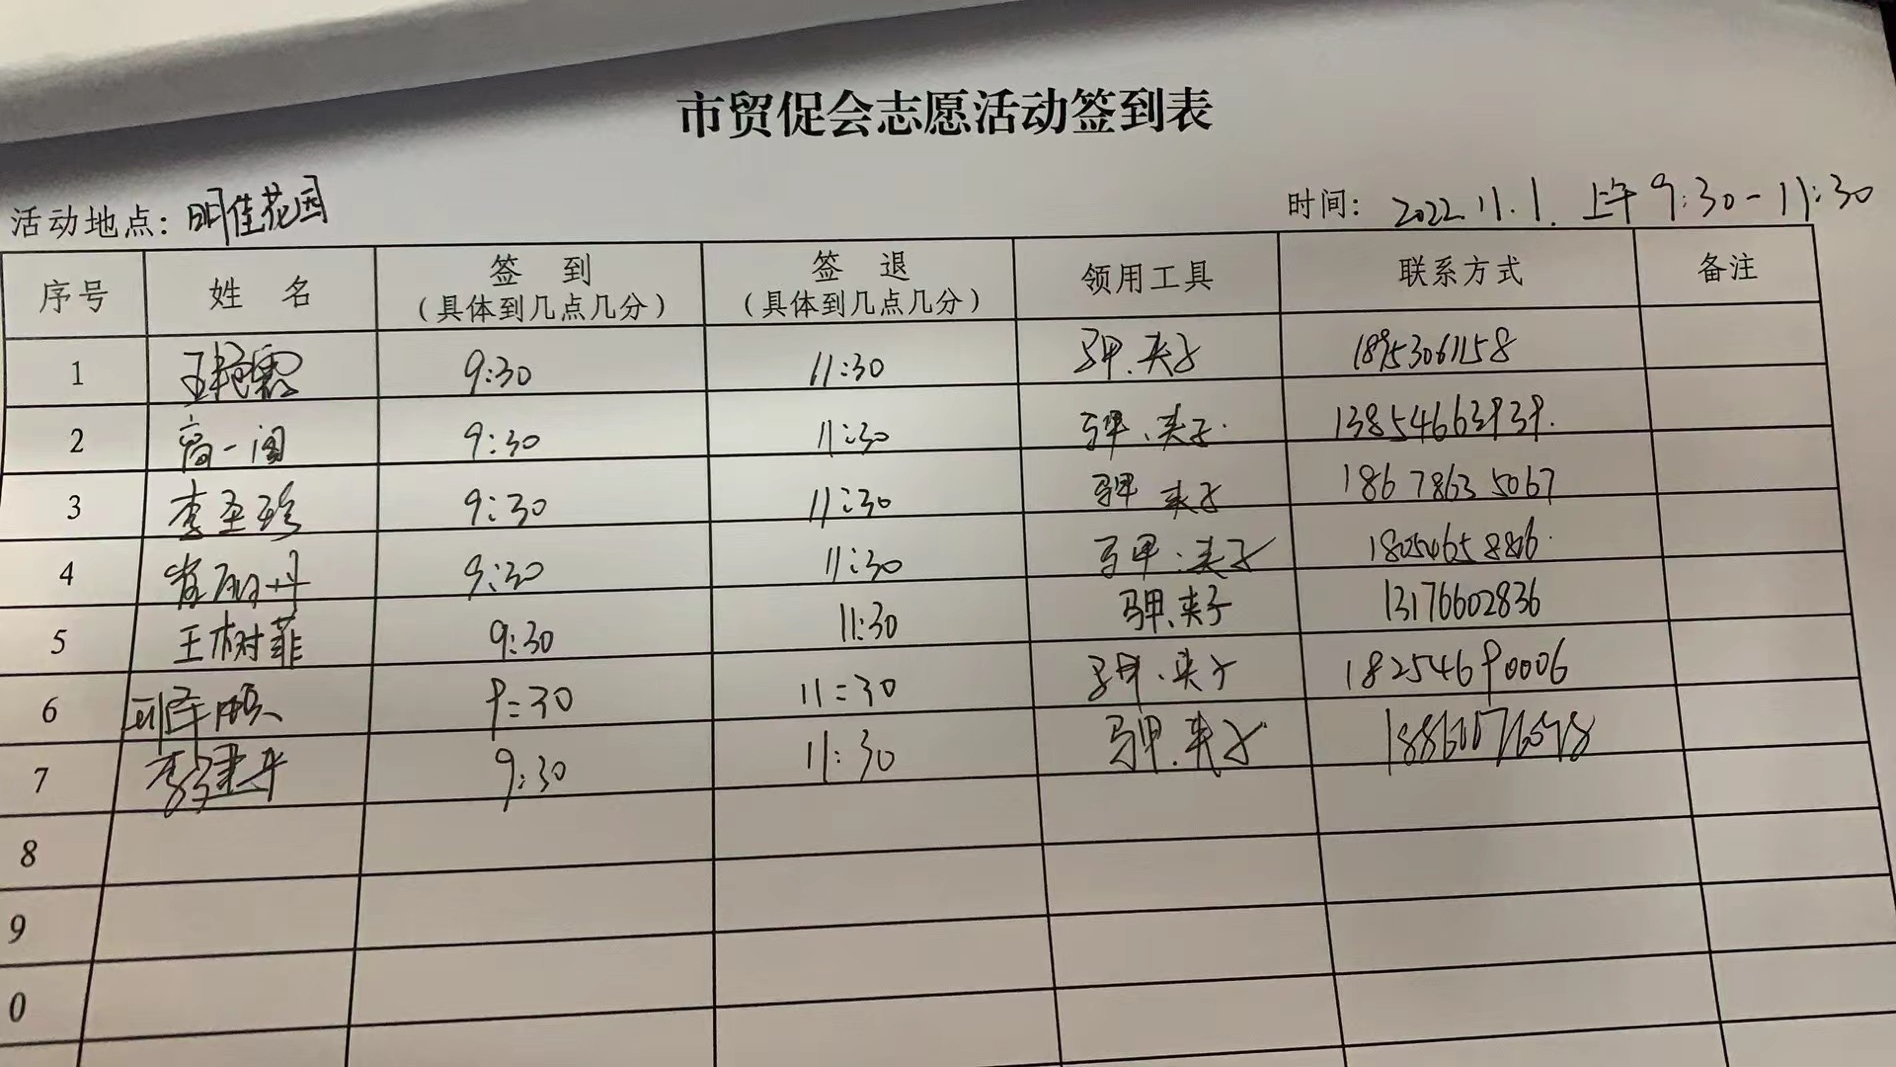 市贸促会志愿活动签到表
活动地点: 明佳花园 时间: 2022.11.1. 上午 9:30-11:30
序号 姓 名 签 到 (具体到几点几分) 签 退 (具体到几点几分) 领用工具 联系方式 备注
1 王艳霞 9:30 11:30 马甲.夹子 18953061158
2 高一 9:30 11:30 马甲、夹子. 13854663939.
3 李玉珍 9:30 11:30 马甲 夹子 18678635067
4 崔丹 9:30 11:30 马甲.夹子
5 王树菲 9:30 11:30 马甲、夹子 13176602836
6 9:30 11:30 马甲.夹子 18254690006
7 李建平 9:30 11:30 马甲.夹子
8
9
0